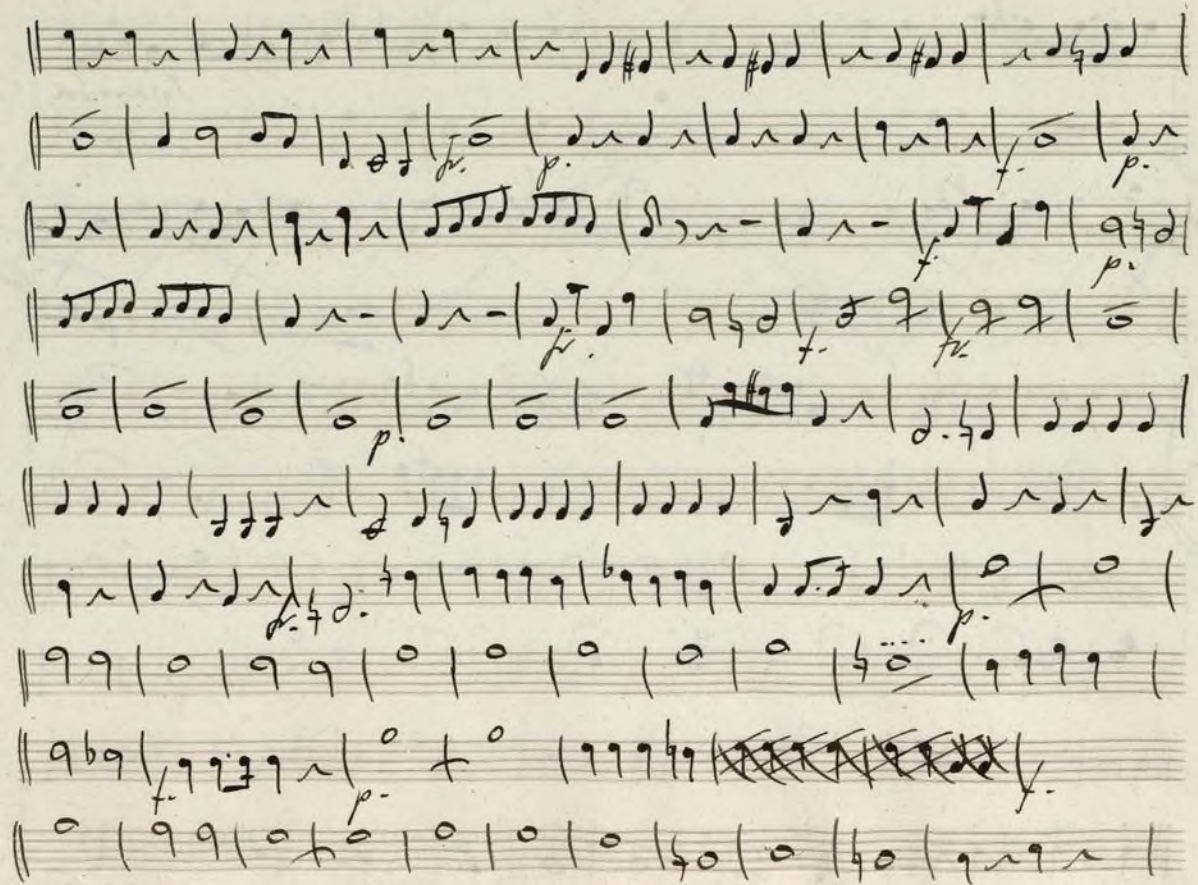 fr. p. f. p.
f. p.
fr. f. fr.
p.
fr. p.
f. p. f.